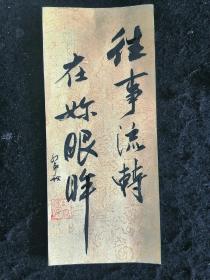 往事流轉
在妳眼眸